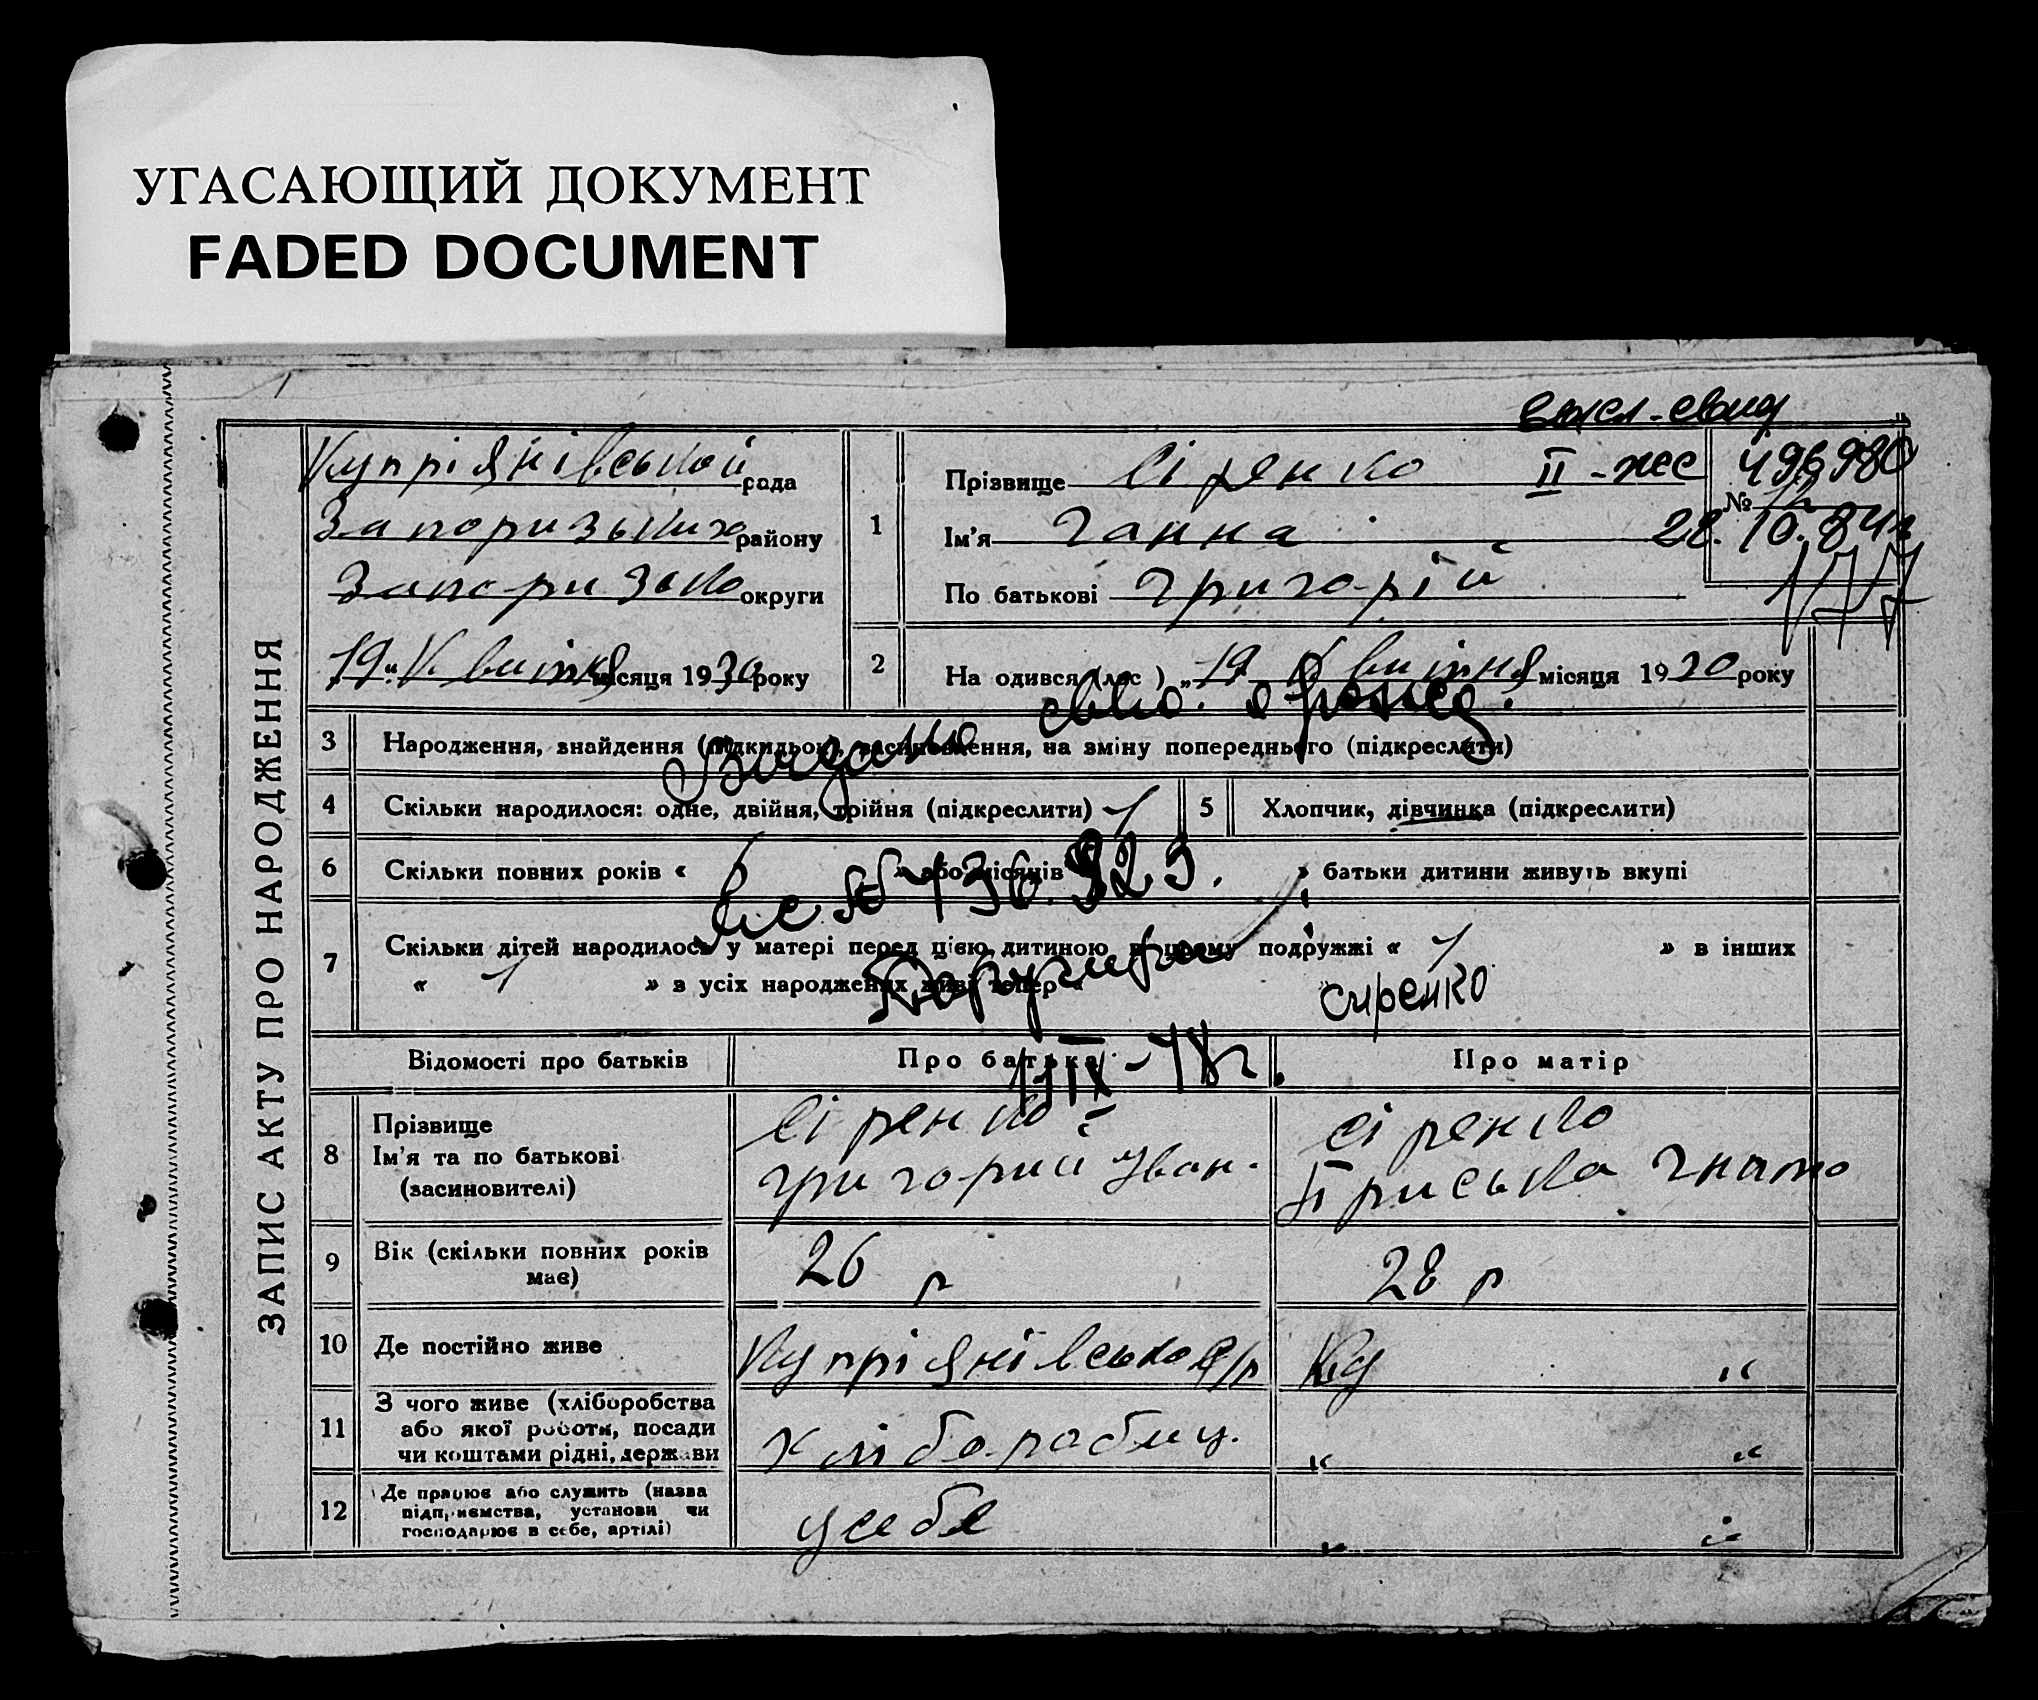 УГАСАЮЩИЙ ДОКУМЕНТ
FADED DOCUMENT
ЗАПИС АКТУ ПРО НАРОДЖЕННЯ
Купріянівської рада
району
округи
19 Квітня місяця 1930 року
1
Прізвище Сіренко
Ім'я Ганна
По батькові Григорій
II-жс 496980
№ 12
28.10.84г
2
На одився (лас ) „19 Квітня місяця 1930 року
свид. о рожд.
3
Народження, знайдення (підкидьок), засиновлення, на зміну попереднього (підкреслити)
Видано
4
Скільки народилося: одне, двійня, трійня (підкреслити) 1
5
Хлопчик, дівчинка (підкреслити)
6
Скільки повних років « 6 » або місяців « » батьки дитини живуть вкупі
7
Скільки дітей народилось у матері перед цією дитиною в цьому подружжі « 1 » в інших
« 1 » в усіх народжених живі тепер «
Сиренко
Відомості про батьків
Про батька
Про матір
IX-78г.
8
Прізвище
Ім'я та по батькові
(засиновителі)
Сіренко
Григорий Іван.
Сіренко
Пріська Гнато
9
Вік (скільки повних років
має)
26 р
28 р
10
Де постійно живе
Купріянівсько с/р
Ку "
11
З чого живе (хліборобства
або якої роботи, посади
чи коштами рідні, держави
" "
12
Де працює або служить (назва
підприємства, установи чи
господарює в себе, артілі)
у себе
" "